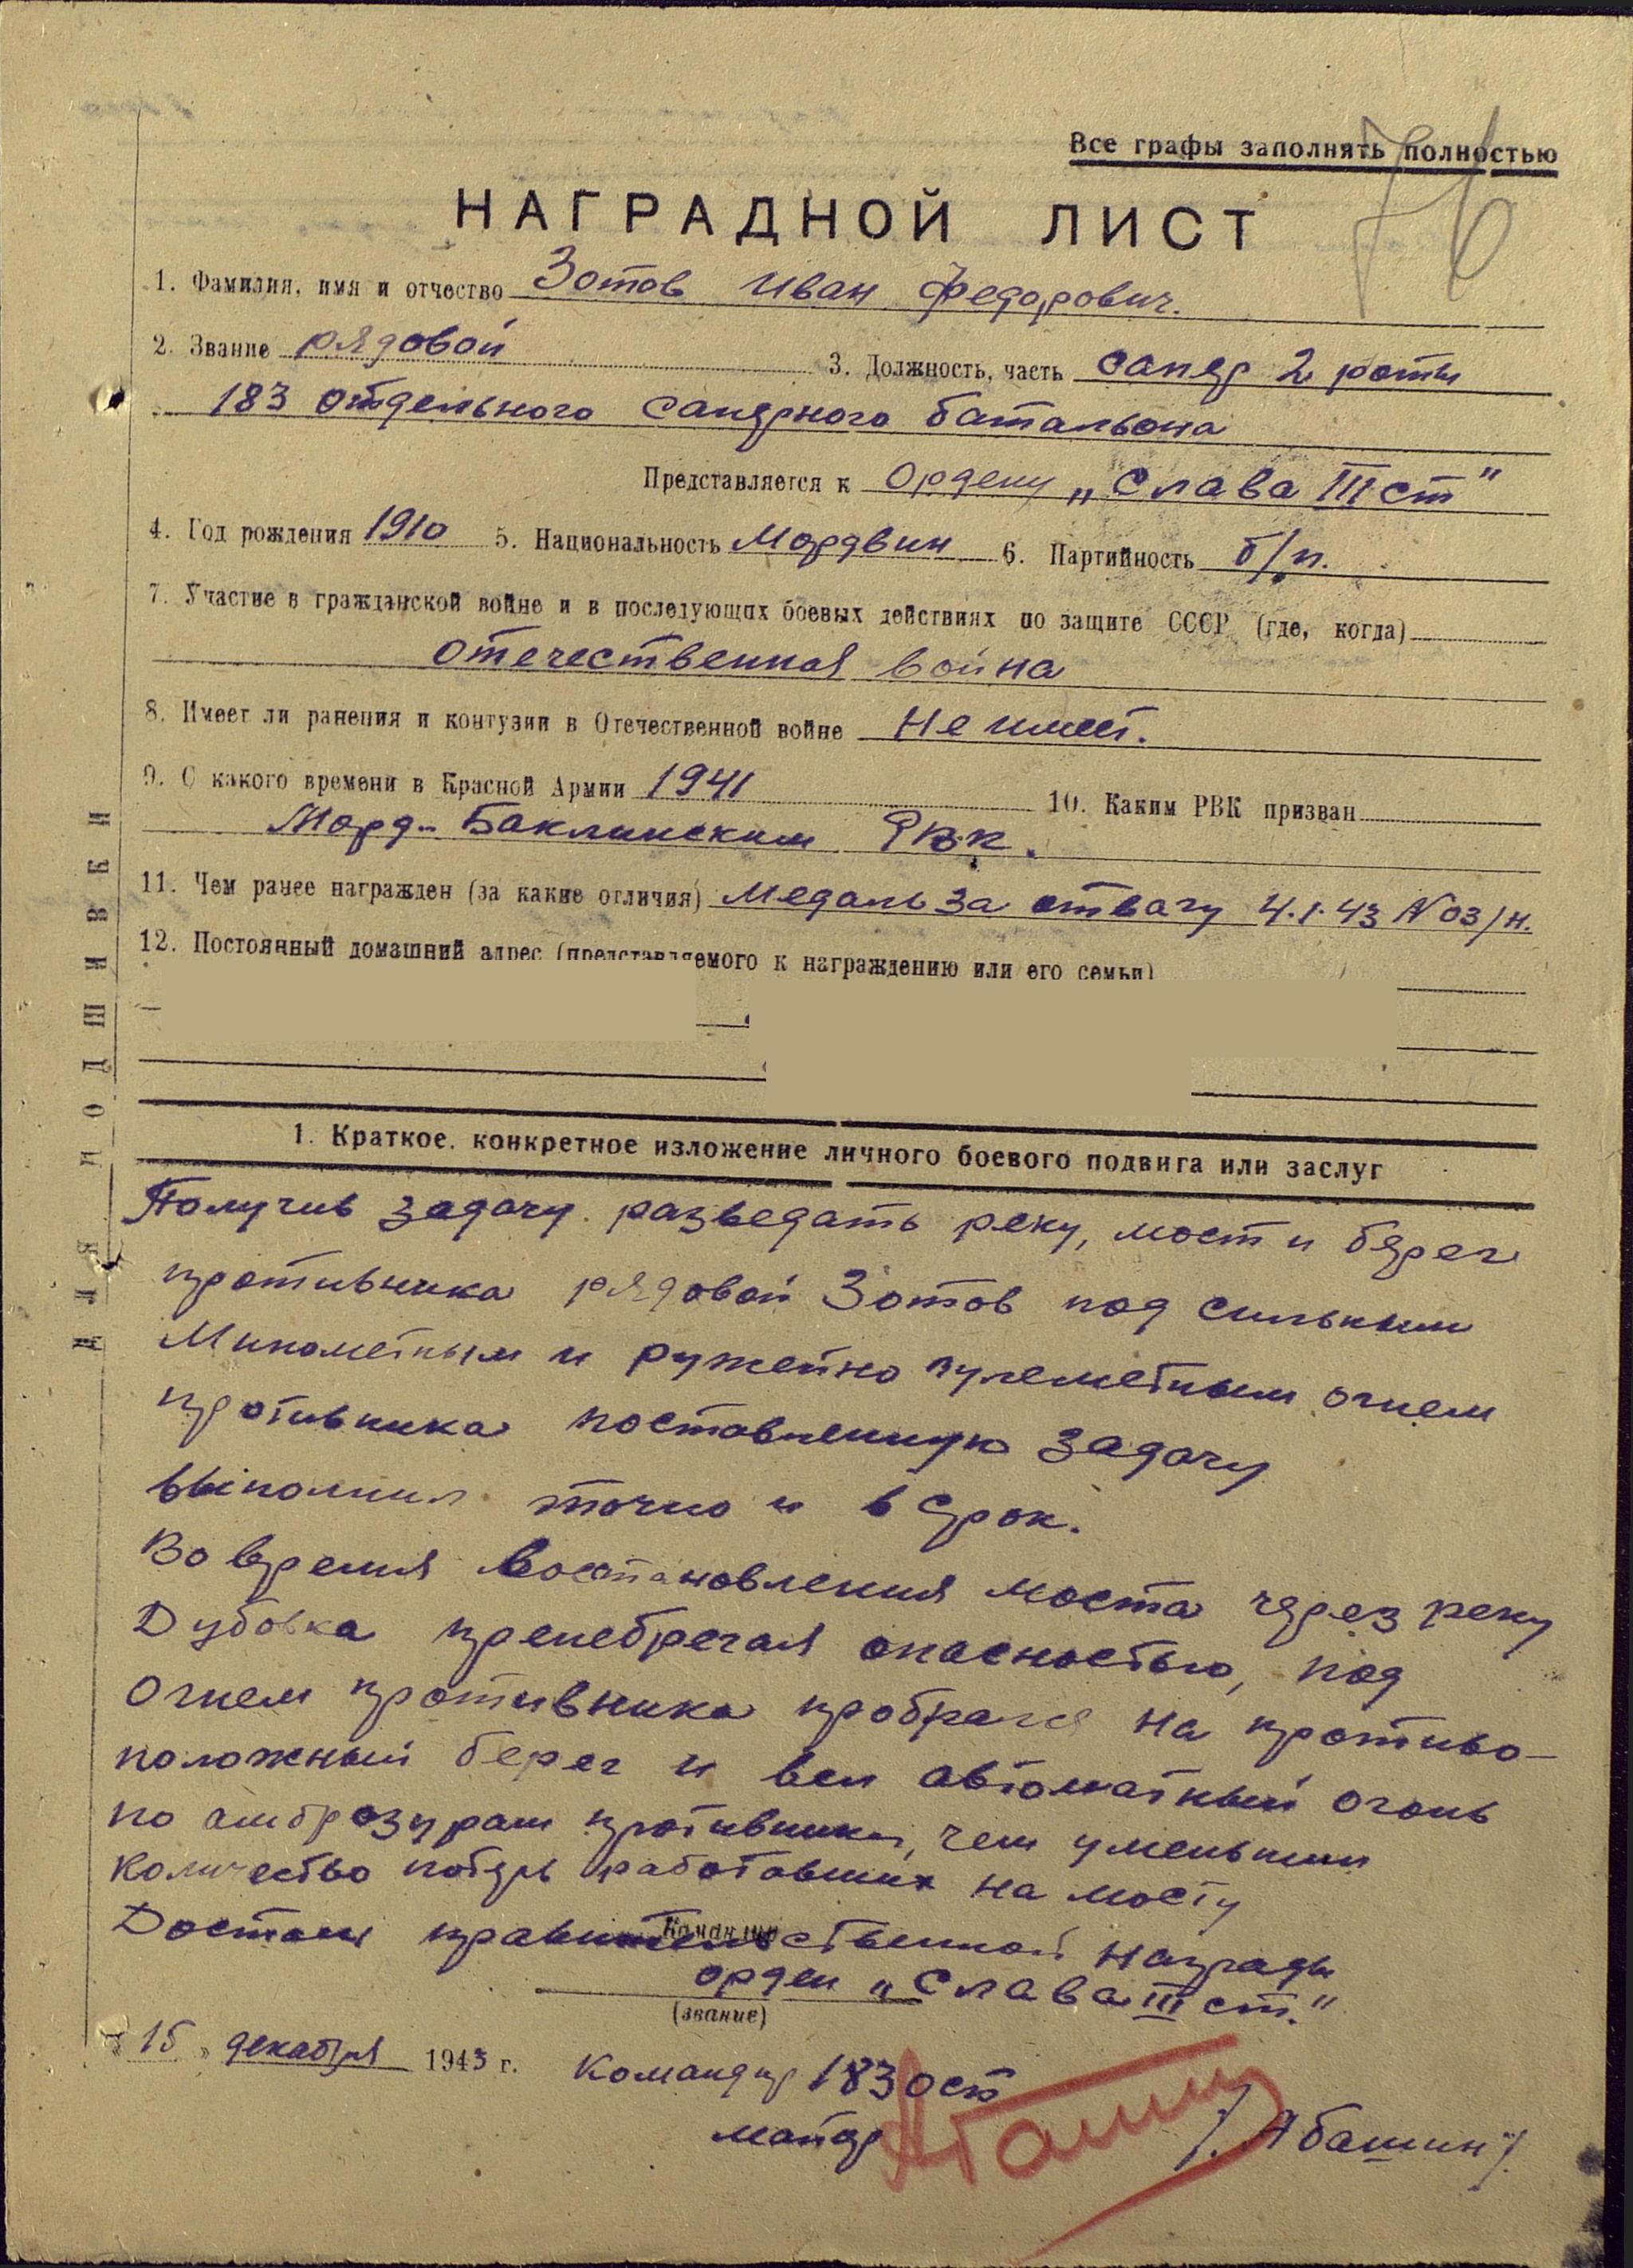 76
Все графы заполнять полностью
НАГРАДНОЙ ЛИСТ
1. Фамилия, имя и отчество Зотов Иван Федорович.
2. Звание рядовой 3. Должность, часть сапер 2 роты
183 отдельного саперного батальона
Представляется к Ордену „Слава III ст"
4. Год рождения 1910 5. Национальность Мордвин 6. Партийность б/п.
7. Участие в гражданской войне и в последующих боевых действиях по защите СССР (где, когда)
Отечественная война
8. Имеет ли ранения и контузии в Отечественной войне Не имеет.
9. С какого времени в Красной Армии 1941 10. Каким РВК призван
Морд-Баклинским РВК.
11. Чем ранее награжден (за какие отличия) Медаль За отвагу 4.1.43 N 03/н.
12. Постоянный домашний адрес (представляемого к награждению или его семьи)
ДЛЯ ПОДШИВКИ
1. Краткое, конкретное изложение личного боевого подвига или заслуг
Получив задачу разведать реку, мост и берег
противника рядовой Зотов под сильным
Минометным и ружейно пулеметным огнем
противника поставленную задачу
выполнил точно и в срок.
Во время востановления моста через реку
Дубовка пренебрегая опасностью, под
огнем противника пробрался на противо-
положный берег и вел автоматный огонь
по амбразурам противника, чем уменьшил
количество потерь работавших на мосту
Достоин правительственной награды
Командир
орден „Слава III ст."
(звание)
„15" декабря 1943 г. Командир 183 осб
майор Абашин /Абашин/